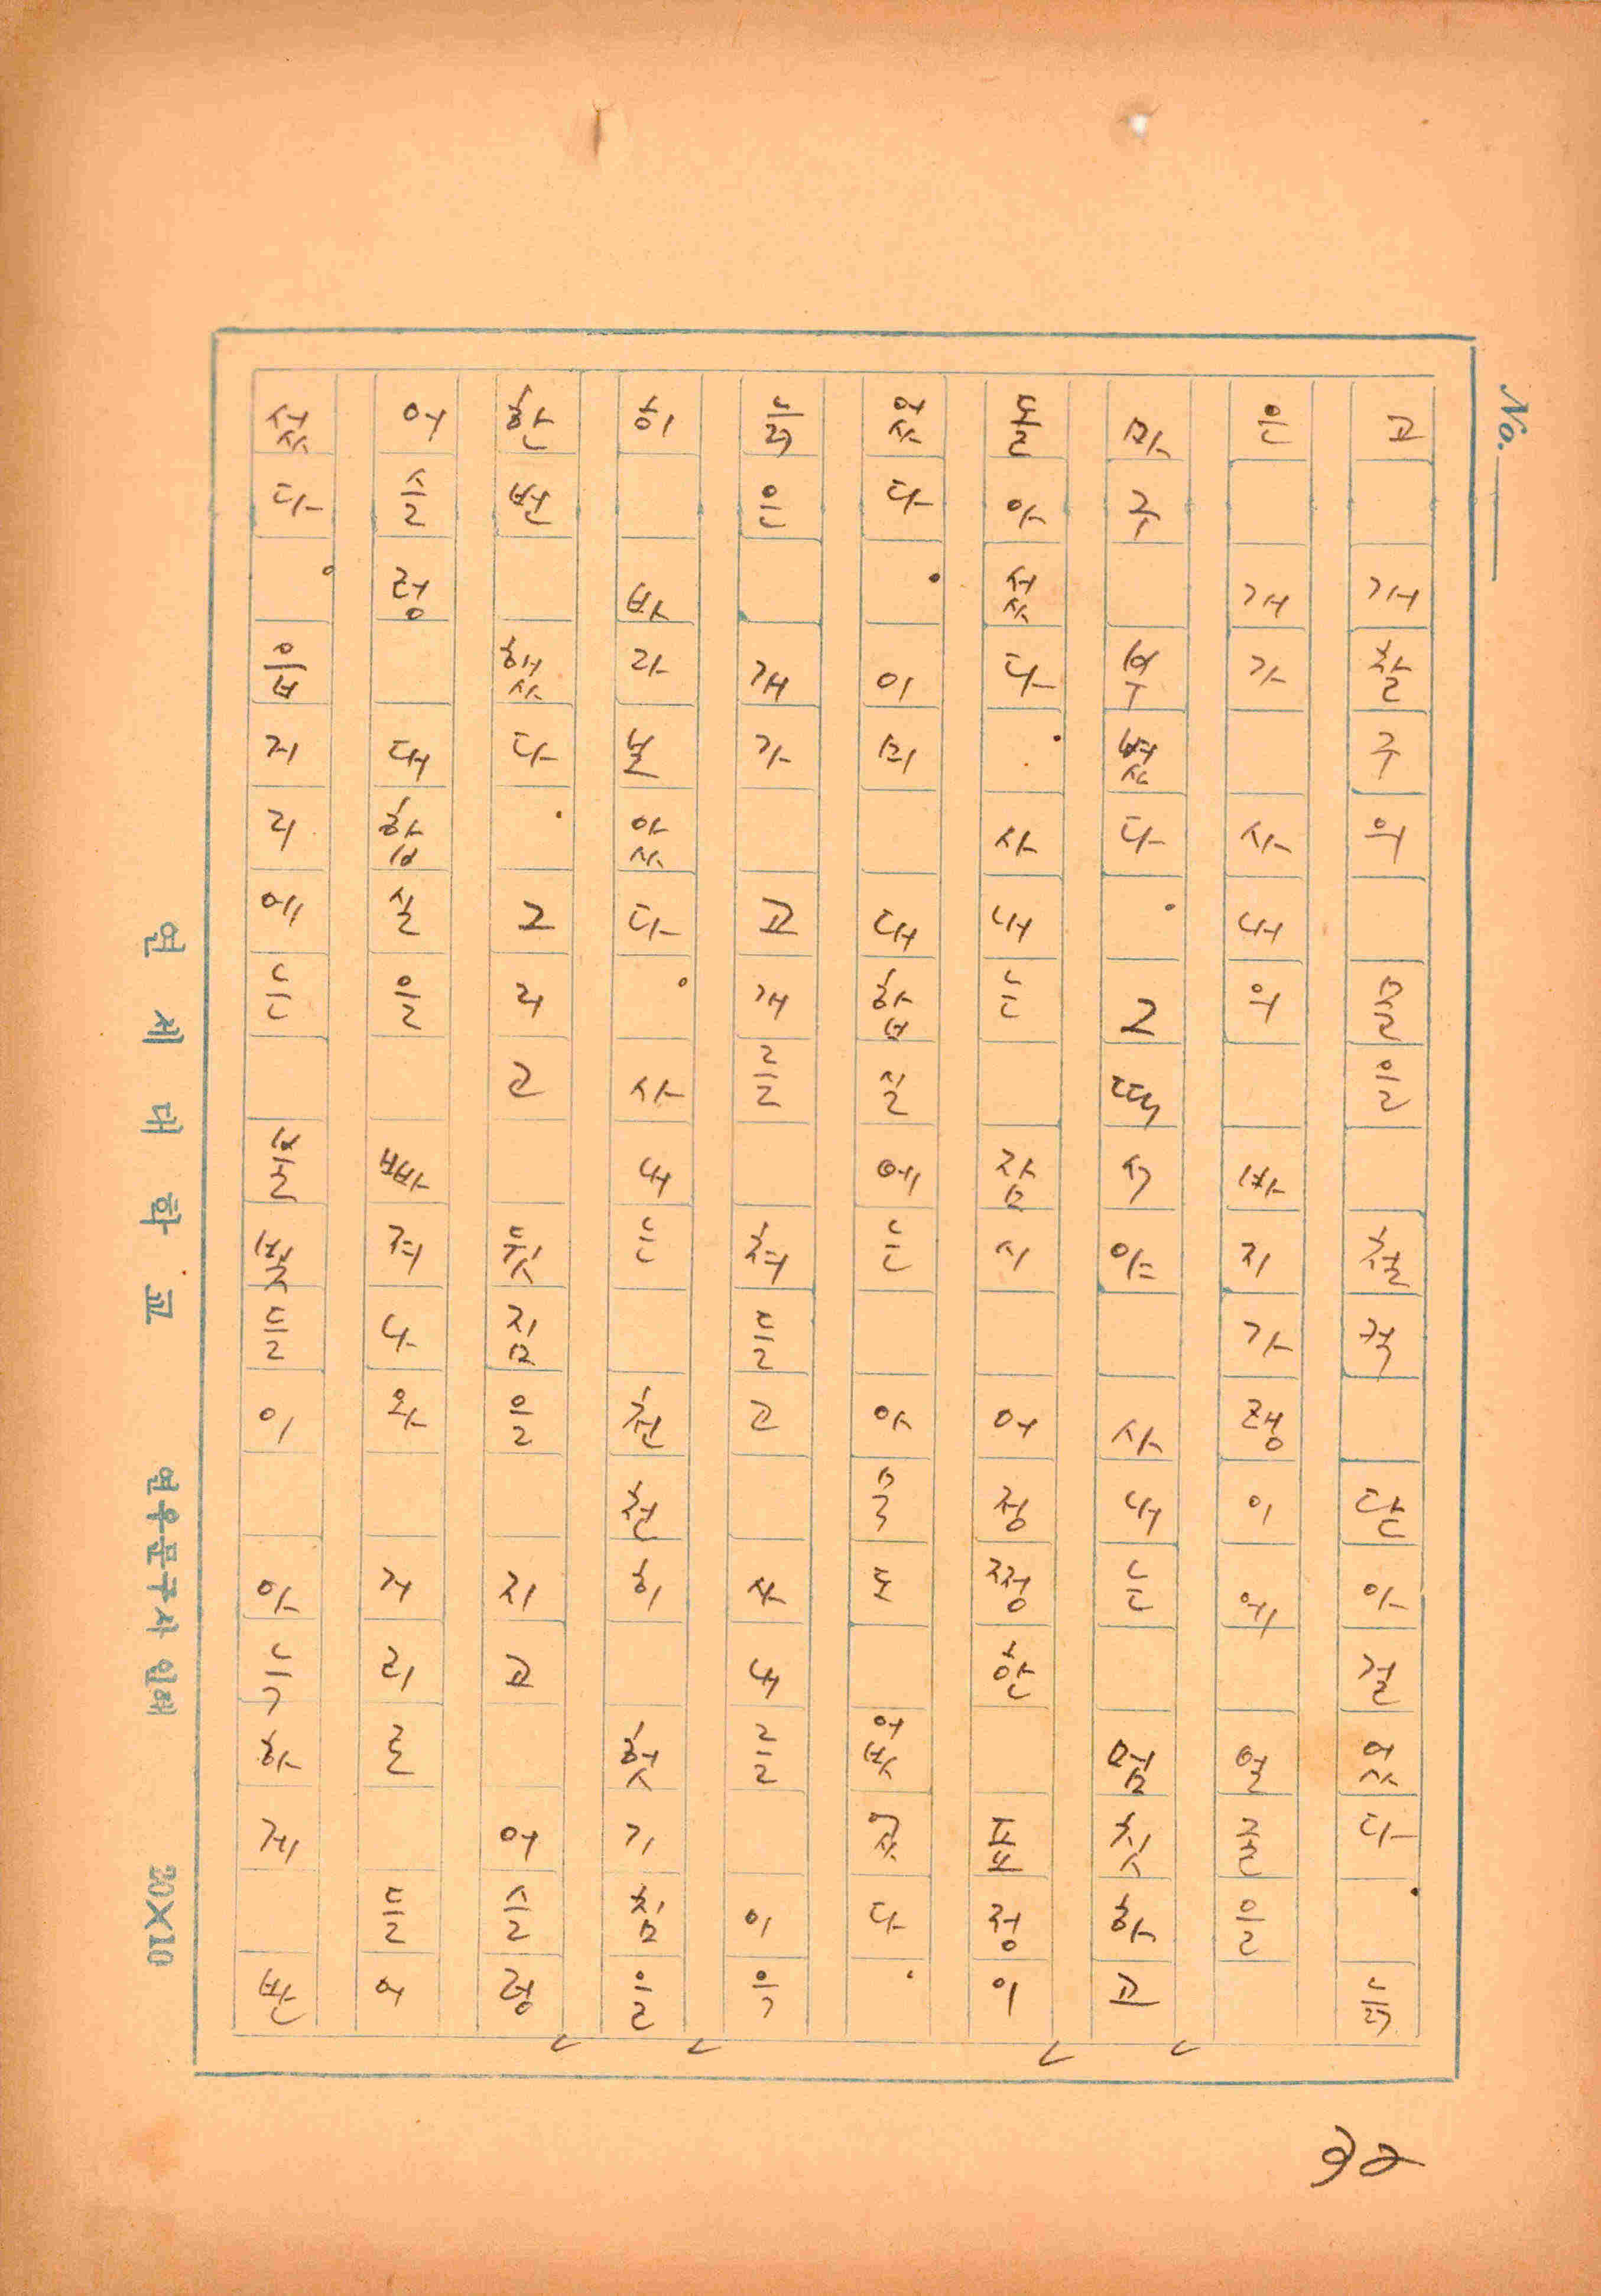 No.
고 개찰구의 문을 철컥 닫아걸었다. 늙
은 개가 사내의 바지가랭이에 얼굴을
마구 부볐다. 그때서야 사내는 멈칫하고
돌아섰다. 사내는 잠시 어정쩡한 표정이
었다. 이미 대합실에는 아무도 없었다.
늙은 개가 고개를 쳐들고 사내를 이윽
히 바라보았다. 사내는 천천히 헛기침을
한번 했다. 그리고 뒷짐을 지고 어슬렁
어슬렁 대합실을 빠져나와 거리로 들어
섰다. 읍거리에는 불빛들이 아늑하게 반
연세대학교 연우문구사 인쇄 20X10
92